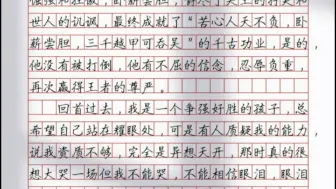 世人的讥讽，最终成就了“苦心人天不负，卧
薪尝胆，三千越甲可吞吴”的千古功业，是的，
他没有被打倒，他有不屈的信念，忍辱负重，
再次赢得王者的尊严。
回首过去，我是一个争强好胜的孩子，总
希望自己站在耀眼处，可是有人质疑我的能力，
说我资质不够，完全是异想天开，那时真的很
想大哭一场但我不能哭，不能相信眼泪，眼泪